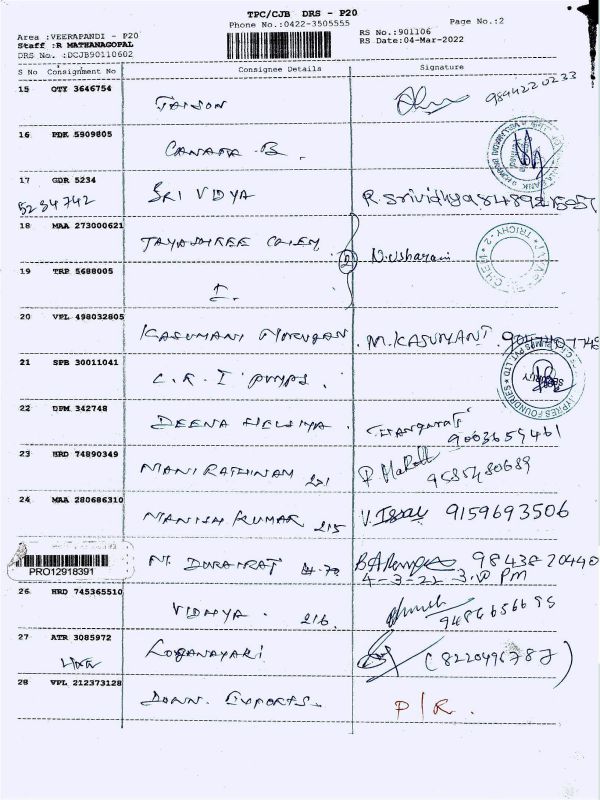 TPC/CJB DRS - P20
Phone No.:0422-3505555
Page No.:2
Area :VEERAPANDI - P20
Staff :R MATHANAGOPAL
DRS No. :DCJB90110602
RS No.:901106
RS Date:04-Mar-2022
S No Consignment No Consignee Details Signature
15 OTY 3646754 JAISON 9894220233
16 PDK 5909805 CANARA B.
17 GDR 5234 SRI VIDYA R. Srividhya
5234742
18 MAA 273000621 JAYASHREE CHEM N. Usharani
2
19 TRP 5688005 I.
TRICHY - 2
20 VPL 498032805 KASUMANI MURUGAN. M. KASUMANI
21 SPB 30011041 C. R. I PUMPS.
FOUNDRIES PVT. LTD
SECURITY
22 DPM 342748 DEENA 9003659461
23 HRD 74890349 MANI RATHINAM 201 9585480689
24 MAA 280686310 MANISH KUMAR 215 9159693506
PRO12918391 M. DURAIRAJ 98438 20440
4-3-22
26 HRD 745365510 VIDHYA. 216 9486656695
27 ATR 3085972 LOGANAYAKI (8220496787)
28 VPL 212373128 Donn. Exports. P/R.